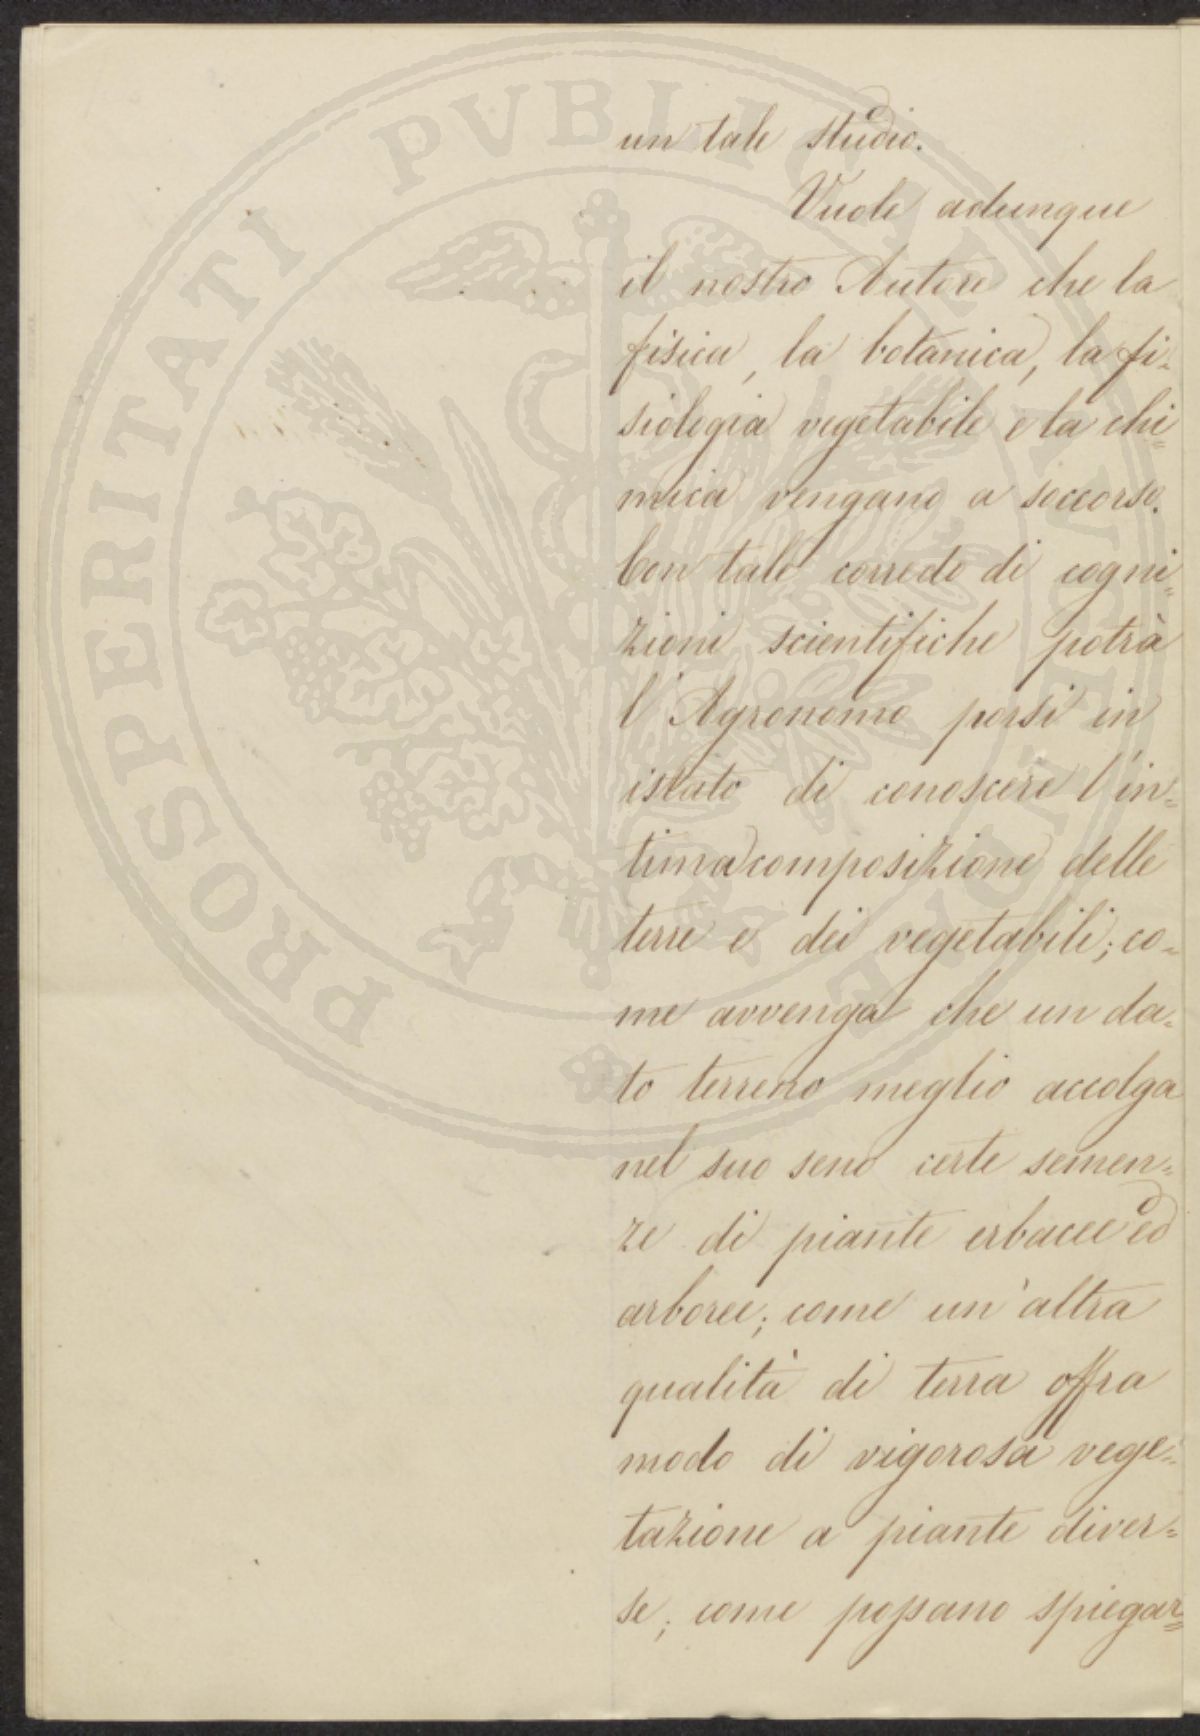 PROSPERITATI PVBLICAE AVGENDAE
un tale studio.
Vuole adunque
il nostro Autore che la
fisica, la botanica, la fi-
siologia vegetabile e la chi=
mica vengano a soccorso.
Con tale corredo di cogni=
zioni scientifiche potrà
l'Agronomo porsi in
istato di conoscere l'in=
tima composizione delle
terre e dei vegetabili; co=
me avvenga che un da=
to terreno meglio accolga
nel suo seno certe semen=
ze di piante erbacee ed
arboree; come un'altra
qualità di terra offra
modo di vigorosa vege=
tazione a piante diver=
se; come possano spiegar=